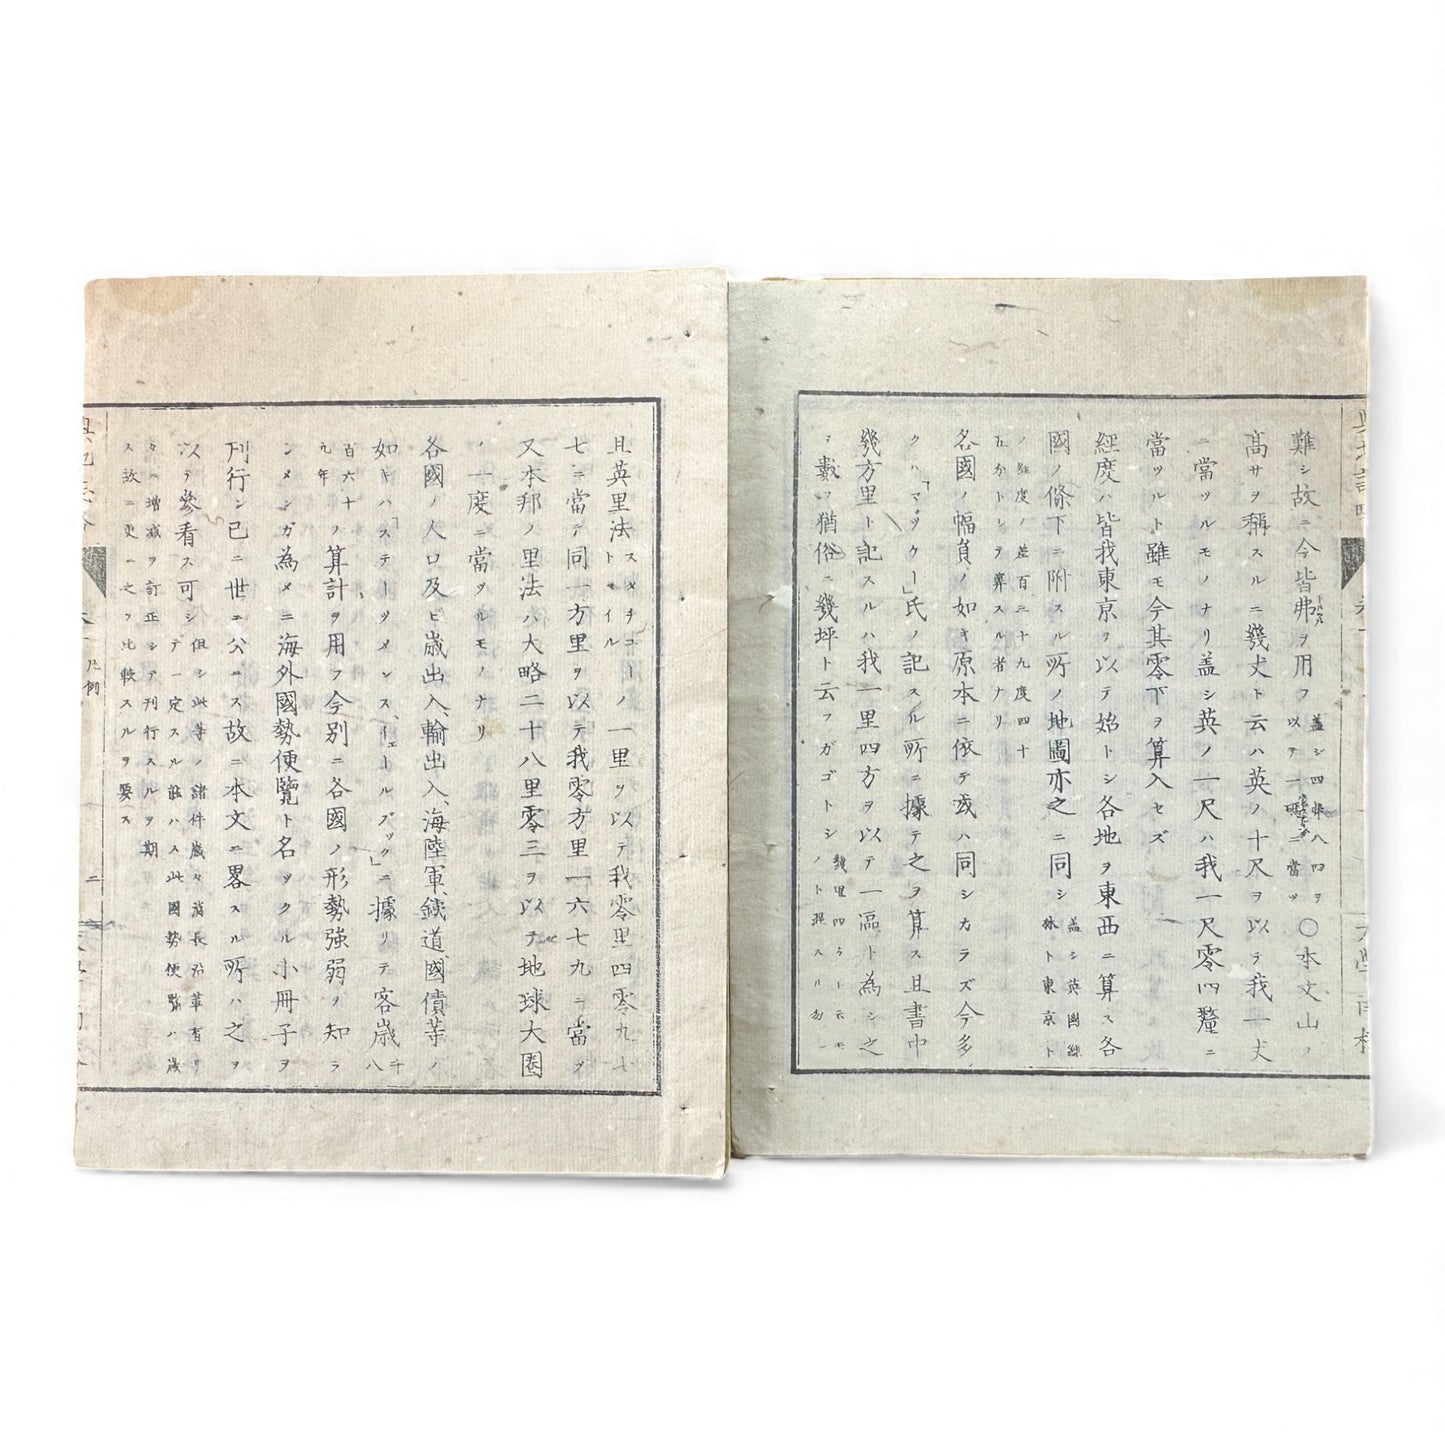 難シ故ニ今皆弗ドルラルヲ用フ蓋シ四弗八四ヲ以テ一磅ニ當ツ〇本文山ノ
高サヲ稱スルニ幾丈ト云ハ英ノ十尺ヲ以テ我一丈
ニ當ツルモノナリ蓋シ英ノ一尺ハ我一尺零四釐ニ
當ツルト雖モ今其零下ヲ算入セズ
經度ハ皆我東京ヲ以テ始トシ各地ヲ東西ニ算ス各
國ノ條下ニ附スル所ノ地圖亦之ニ同シ蓋シ英國綠林ト東京ト
ノ經度ノ差百三十九度四十五分トシテ算スル者ナリ
各國ノ幅員ノ如キ原本ニ依テ或ハ同シカラズ今多
クハ「マッケー」氏ノ記スル所ニ據テ之ヲ算ス且書中
幾方里ト記スルハ我一里四方ヲ以テ一區ト為シ之
ヲ數フ猶俗ニ幾坪ト云フガゴトシ幾里四方ト云モノト混スル勿レ
且英里法スタチユートマイルノ一里ヲ以テ我零里四零九七
七ニ當テ同一方里ヲ以テ我零方里一六七九ニ當ツ
又本邦ノ里法ハ大略二十八里零三ヲ以テ地球大圏
ノ一度ニ當ツルモノナリ
各國ノ人口及ビ歳出入、輸出入、海陸軍、鐵道國債等ノ
如キハ「ステーツメンス、イエールブック」ニ據リテ客歳千八
百六十九年ノ算計ヲ用フ今別ニ各國ノ形勢強弱ヲ知ラ
ンメンガ為メニ海外國勢便覽ト名ツクル小冊子ヲ
刊行シ已ニ世ニ公ニス故ニ本文ニ畧スル所ハ之ヲ
以テ參看ス可シ但シ此等ノ諸件歳々消長沿革有リテ一定スル能ハス此國勢便覽ハ歳
々ニ增減ヲ訂正シテ刊行スルヲ期ス故ニ更ニ之ヲ比較スルヲ要ス
凡例
二